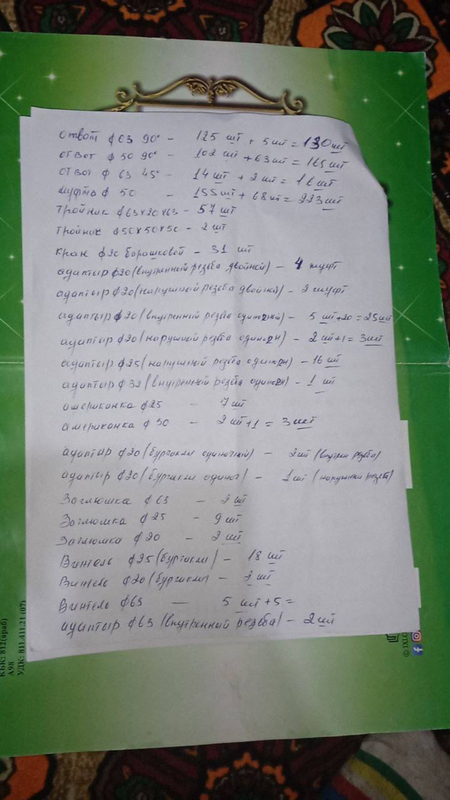 отвот ф63 90° - 125 шт + 5шт = 130шт
отвот ф 50 90° - 102 шт + 63шт = 165шт
отвот ф 63 45° - 14 шт + 2шт = 16шт
муфта ф 50 - 155 шт + 68шт = 223шт
Тройник ф63х20х63 - 57 шт
Тройник ф50х50х50 - 2 шт
Кран ф20 барашковой - 31 шт
адаптыр ф20 (внутренный резба двойной) - 4 шуфт
адаптыр ф20 (наружный резба двойной) - 2 шуфт
адаптыр ф20 (внутренный резба одиночный) - 5 шт+20 = 25шт
адаптыр ф20 (наружный резба одиночн) - 2 шт+1 = 3шт
адаптыр ф25 (наружный резба одиночн) - 16 шт
адаптыр ф32 (внутренный резба одиночн) - 1 шт
американка ф25 - 7 шт
американка ф 50 - 2 шт+1 = 3шт
адаптыр ф20 (бургикли одиночный) - 2шт (внутрн резба)
адаптыр ф20 (бургикли одиноч) - 1шт (наружный резба)
Заглюшка ф 63 - 2 шт
Заглюшка ф25 - 9 шт
Заглюшка ф20 - 2 шт
Винтель ф25 (бургикли) - 18 шт
Винтель ф20 (бургикли) - 7 шт
Винтель ф63 - 5 шт+5 =
адаптыр ф63 (внутренный резьба) - 2шт
КБК: 812(араб)
А98
УДК: 811.411.21 (07)